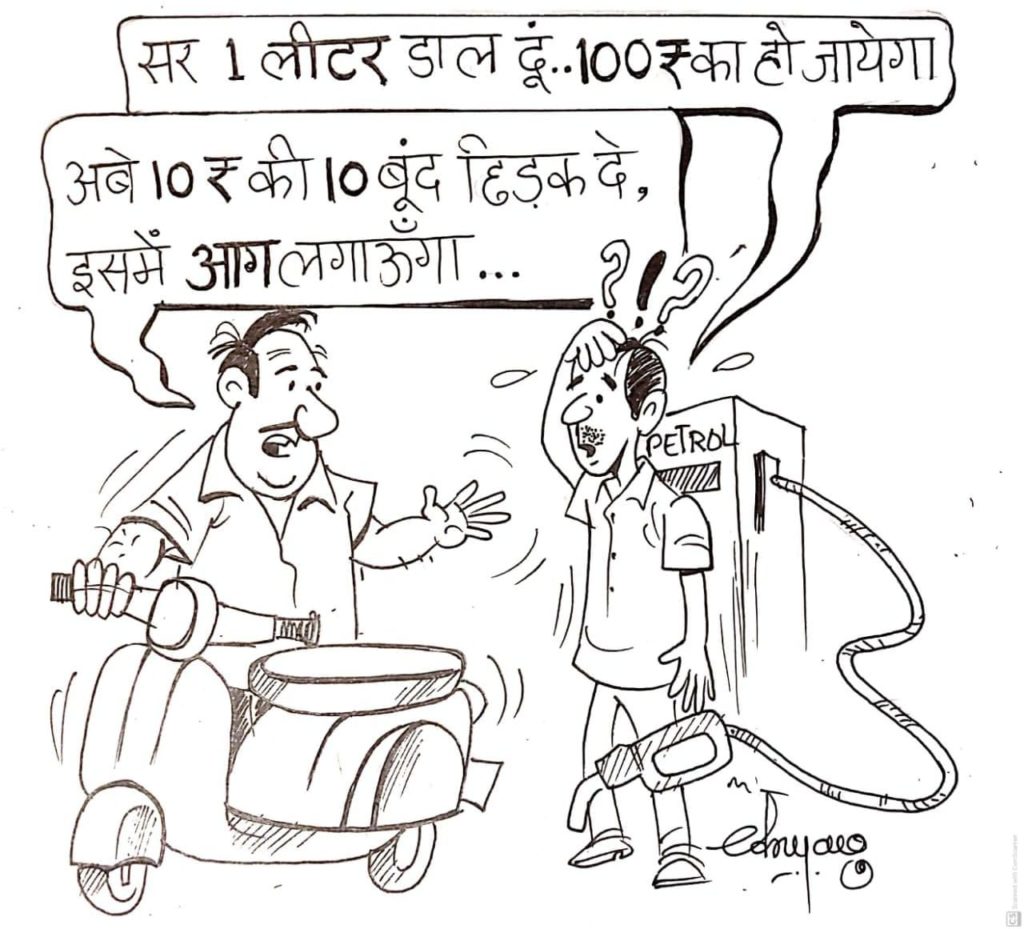 सर 1 लीटर डाल दूं..100₹का हो जायेगा
अबे 10₹ की 10 बूंद छिड़क दे,
इसमें आग लगाऊँगा...
? ! ?
PETROL
CS Scanned with CamScanner